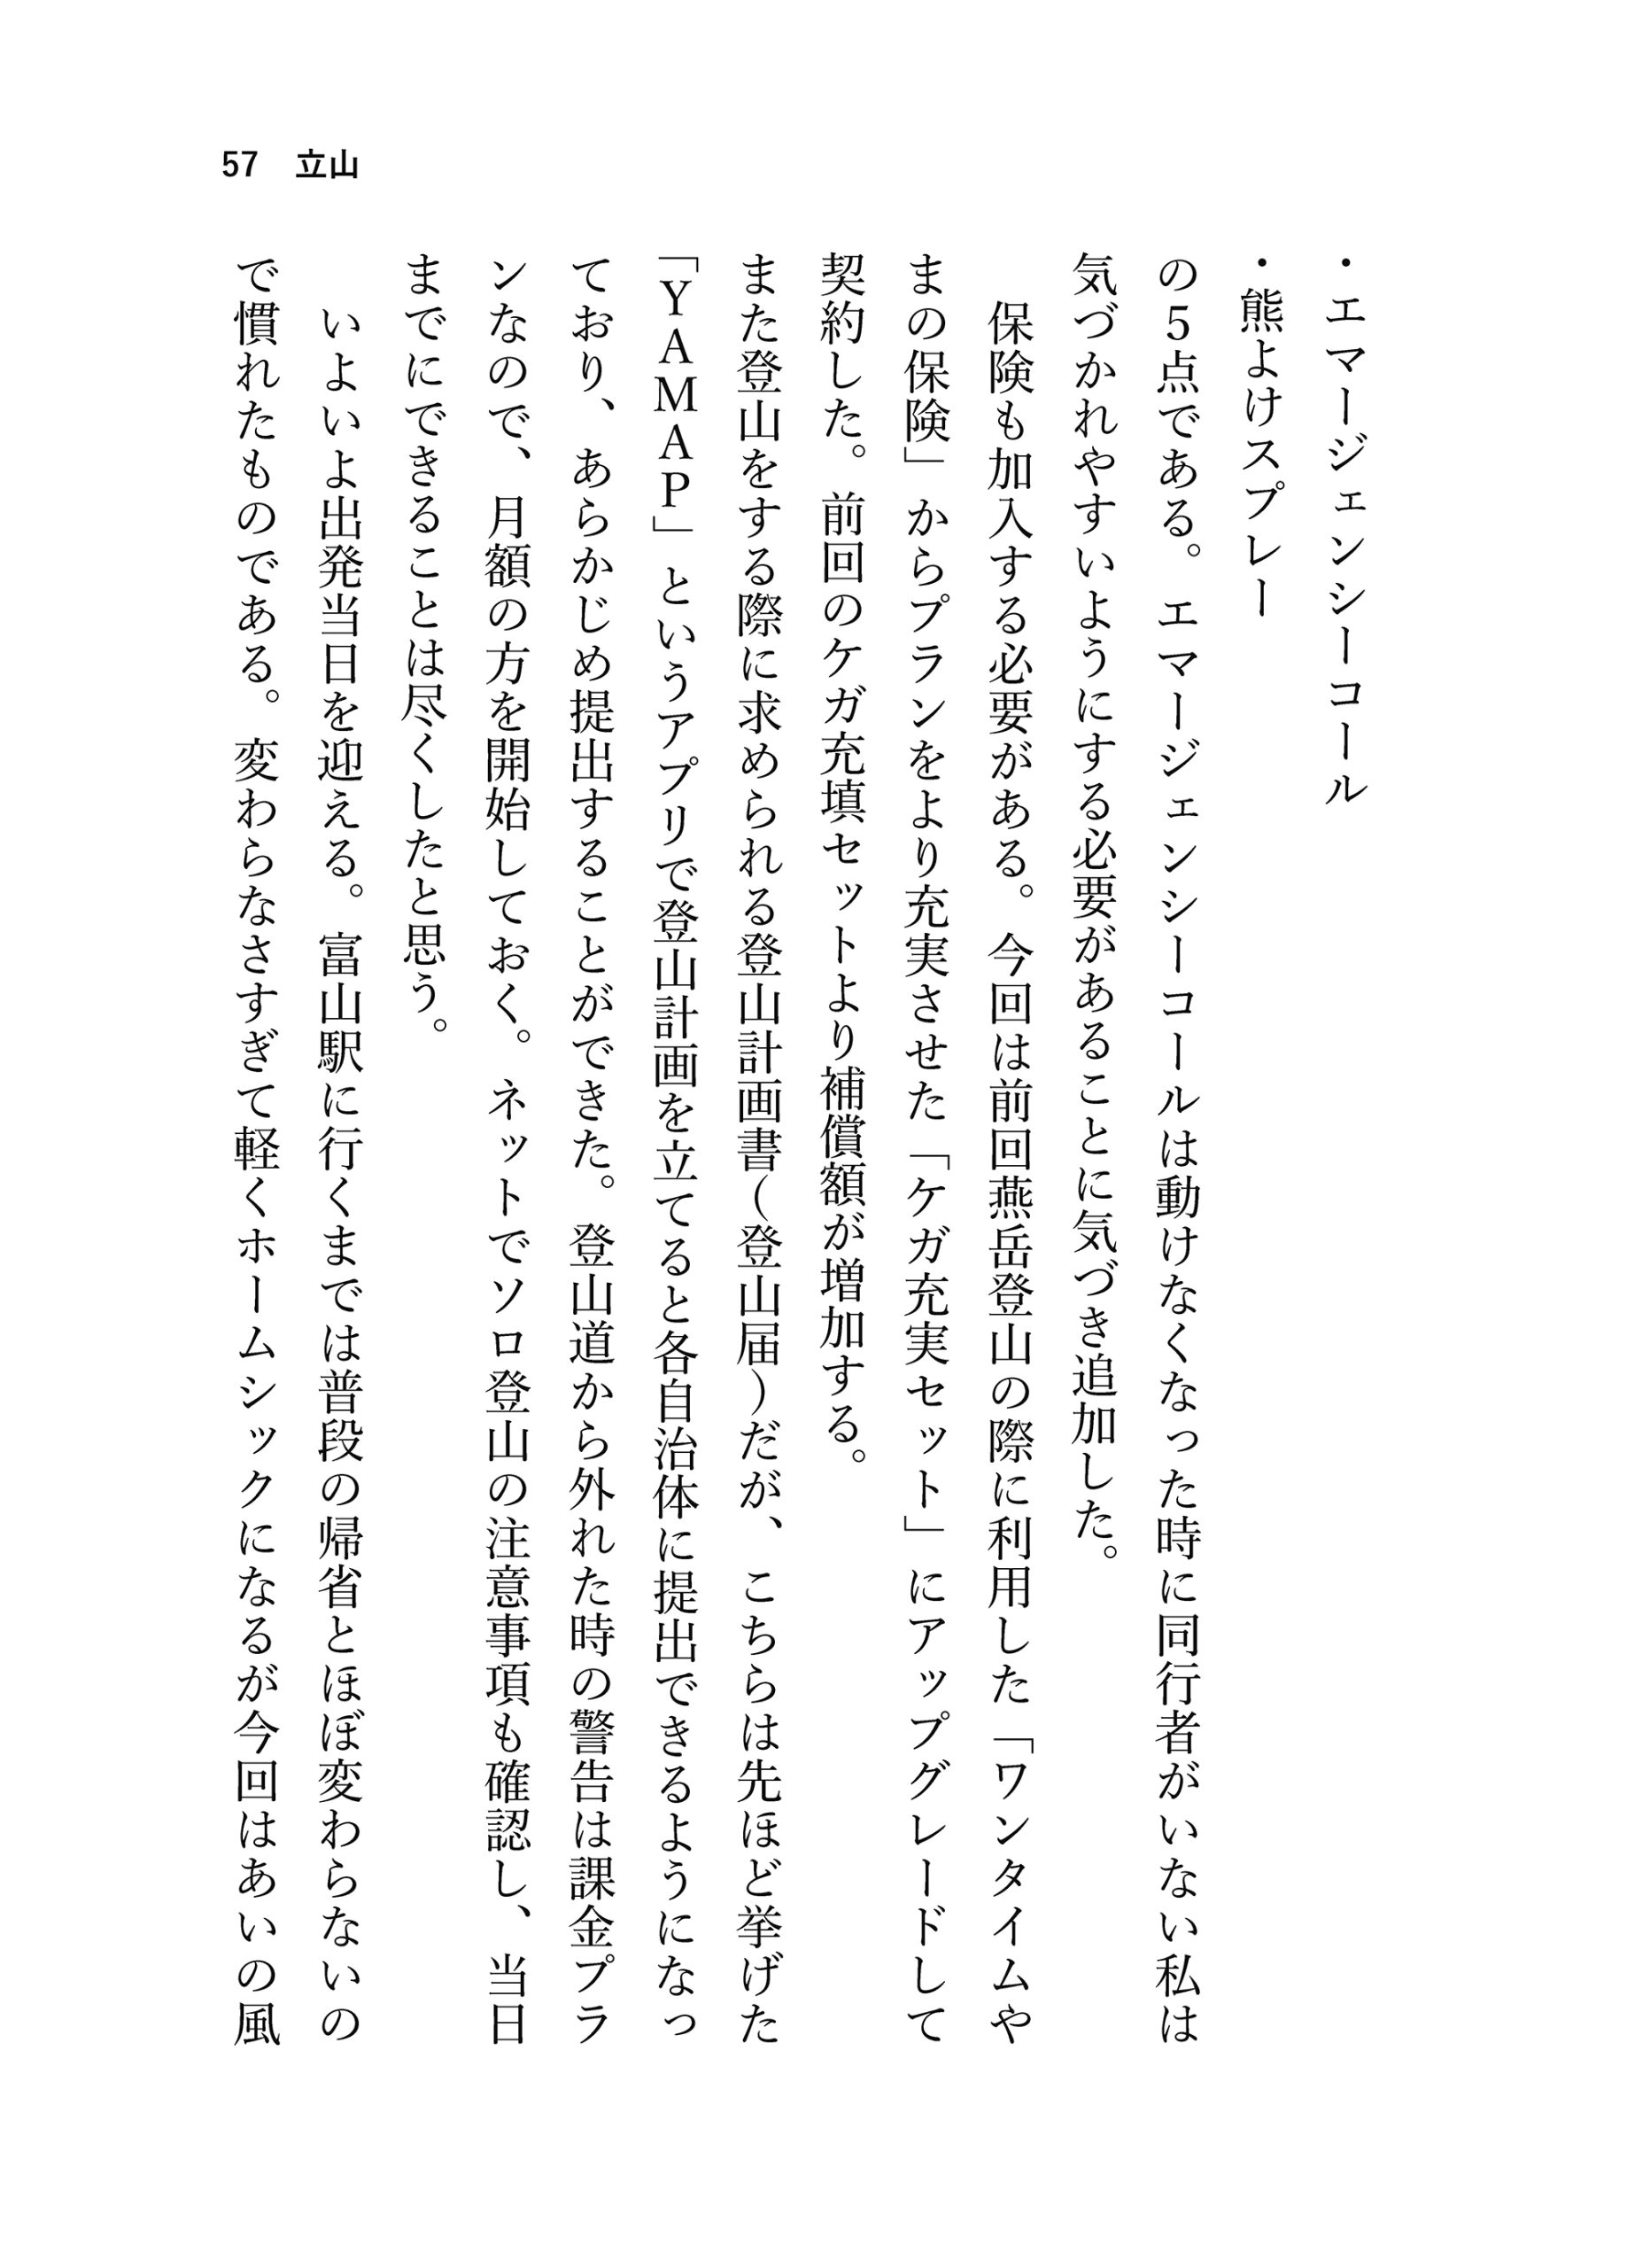 57 立山
・エマージェンシーコール
・熊よけスプレー
の5点である。エマージェンシーコールは動けなくなった時に同行者がいない私は
気づかれやすいようにする必要があることに気づき追加した。
　保険も加入する必要がある。今回は前回燕岳登山の際に利用した「ワンタイムや
まの保険」からプランをより充実させた「ケガ充実セット」にアップグレードして
契約した。前回のケガ充填セットより補償額が増加する。
また登山をする際に求められる登山計画書(登山届)だが、こちらは先ほど挙げた
「YAMAP」というアプリで登山計画を立てると各自治体に提出できるようになっ
ており、あらかじめ提出することができた。登山道から外れた時の警告は課金プラ
ンなので、月額の方を開始しておく。ネットでソロ登山の注意事項も確認し、当日
までにできることは尽くしたと思う。
　いよいよ出発当日を迎える。富山駅に行くまでは普段の帰省とほぼ変わらないの
で慣れたものである。変わらなさすぎて軽くホームシックになるが今回はあいの風